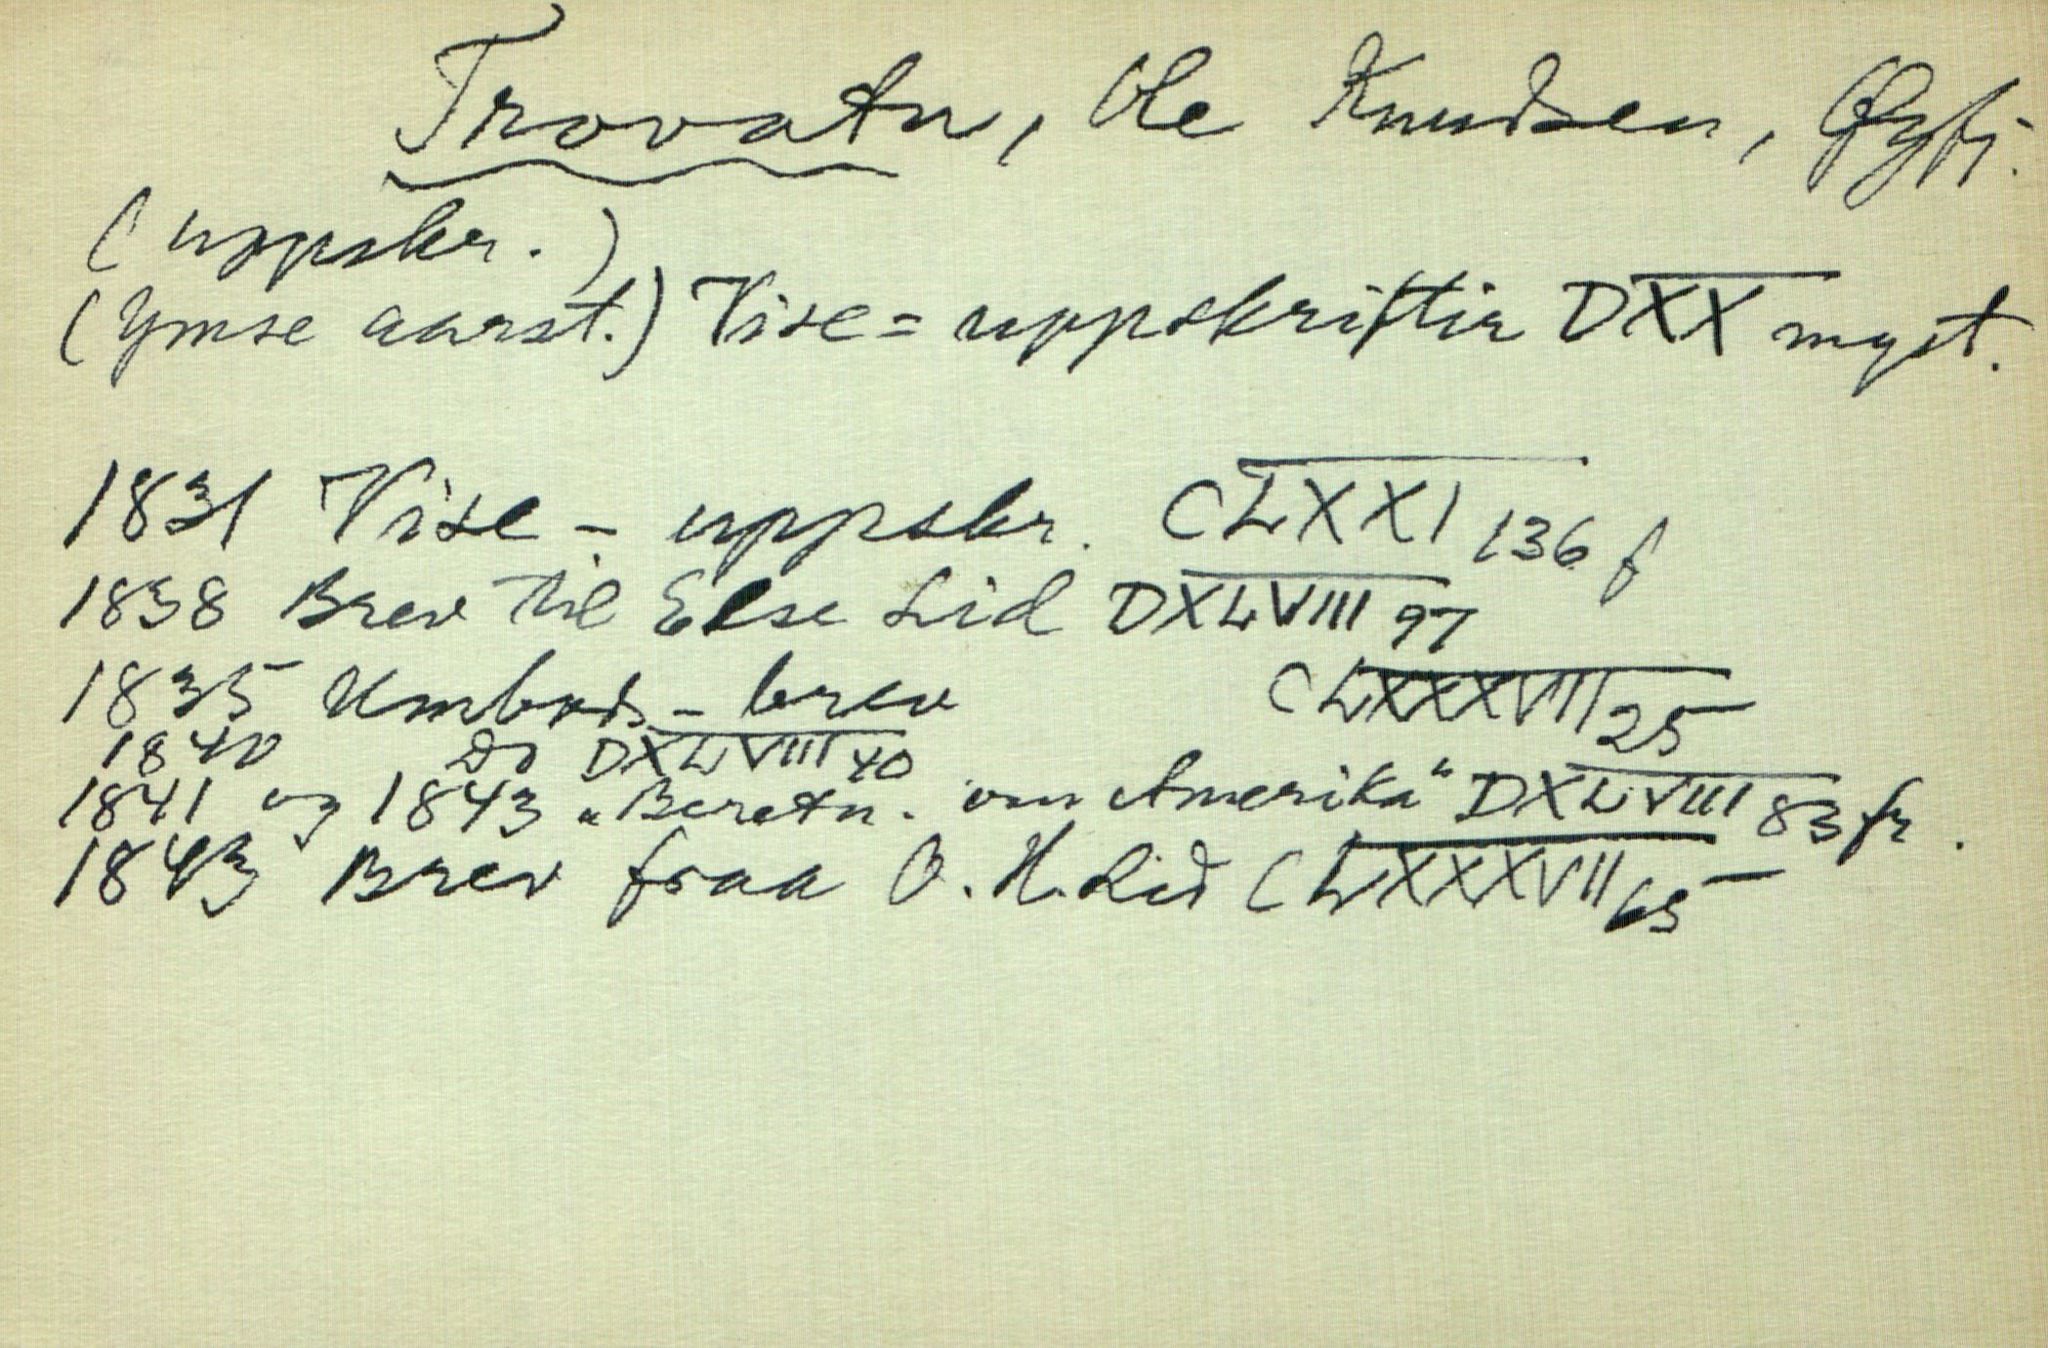 Trovatn, Ole Knudsen, Øyfj.
(uppskr.)
(Ymse aarst.) Vise=uppskriftir DXX myst.
1831 Vise-uppskr. CLXXI 136 f
1838 Brev til Else Lid DXLVIII 97
1835 Umbods-brev CLXXXVII 25
1840 Do DXLVIII 40
1841 og 1843 „Beretn. om Amerika“ DXLVIII 83 fr.
1843 Brev fraa O. H. Lid CLXXXVII 65